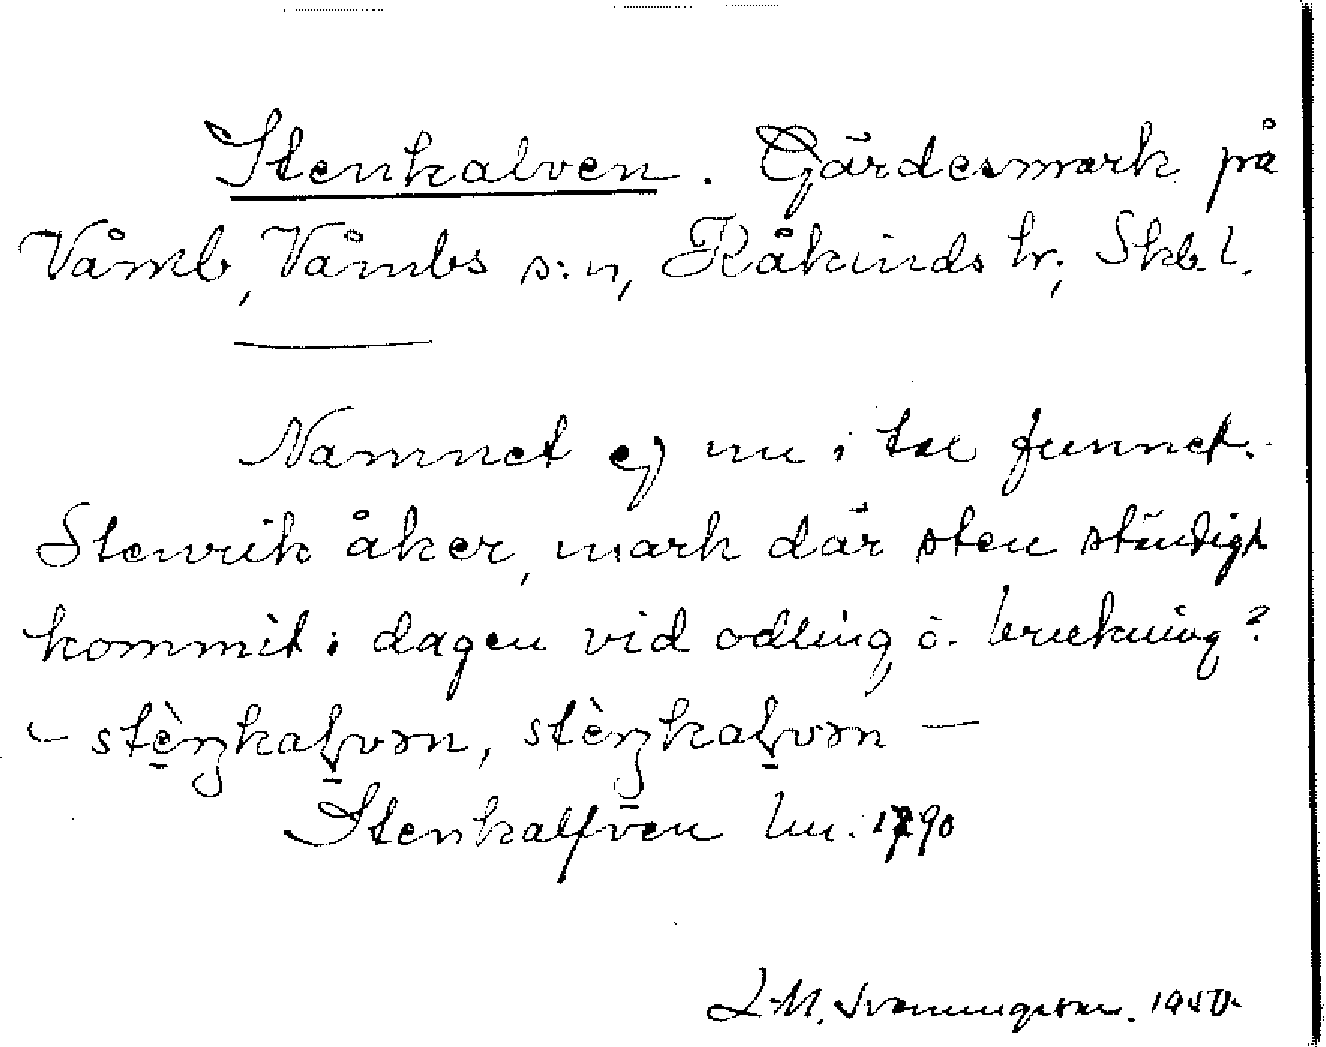 Stenkalven. Gärdesmark på
Våmb, Våmbs s:n, Kåkinds hr, Skb. l.
Namnet ej nu i tal funnet.
Stenrik åker, mark där sten ständigt
kommit i dagen vid odling o. brukning?
– stèŋkaḷvən, stèŋkaḷvən –
Stenkalfven lm. 1790
L. M. Svenungsson. 1950.